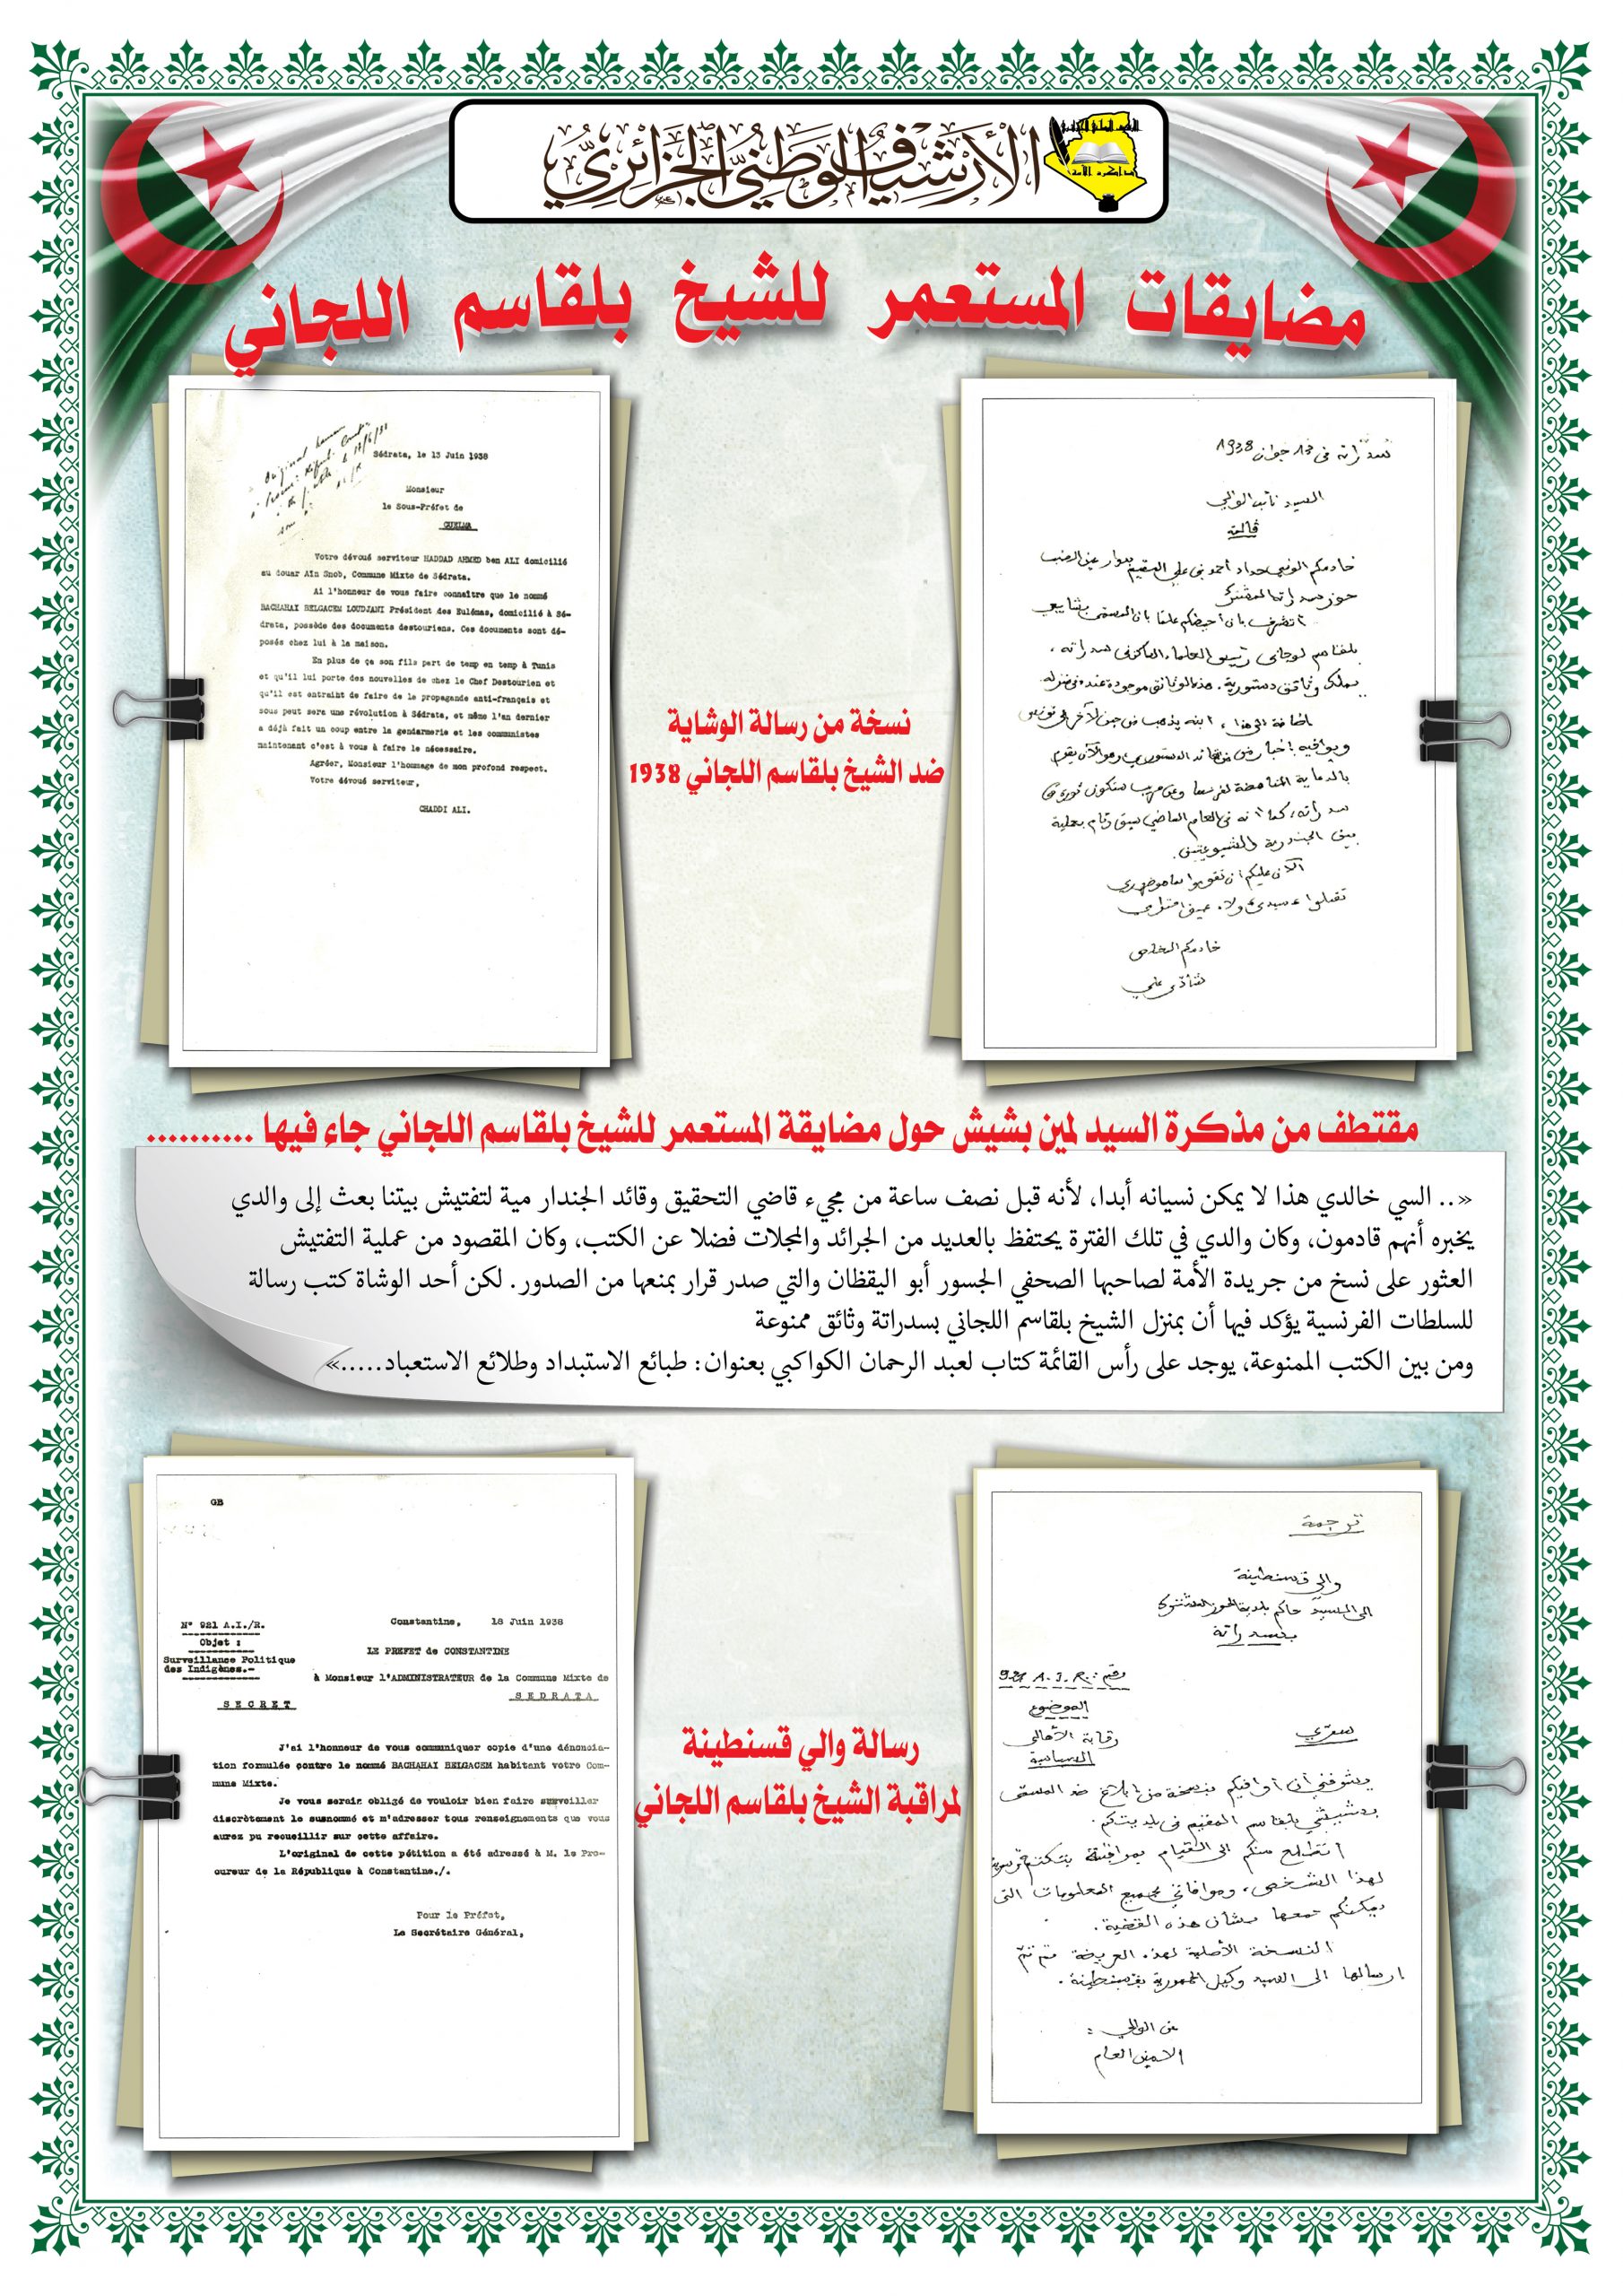 الأرشيف الوطني الجزائري
مضايقات المستعمر للشيخ بلقاسم اللجاني
سدراتة في 13 جوان 1938
السيد نائب الوالي
ڤالمة
خادمكم الوفي حداد أحمد بن علي المقيم بدوار عين السنب
حوز سدراتة المختلط
أتشرف بأن أحيطكم علما بأن المسمى بشايشي
بلقاسم لوجاني رئيس العلماء الساكن في سدراته،
يملك وثائق دستورية. هذه الوثائق موجودة عنده في منزله
إضافة إلى هذا، ابنه يذهب من حين لآخر إلى تونس
ويوافيه بأخبار من القائد الدستوري وهو الآن يقوم
بالدعاية المناهضة لفرنسا وعن قريب ستكون ثورة في
سدراته، كما أنه في العام الماضي سبق وقام بعملية
بين الجندرمة والشيوعيين.
الآن عليكم أن تقوموا بما هو ضروري
تقبلوا سيدي ولاء عميق احترامي
خادمكم المخلص
شادي علي
Sédrata, le 13 Juin 1938
Monsieur
le Sous-Préfet de
GUELMA
Votre dévoué serviteur HADDAD AHMED ben ALI domicilié
au douar Aïn Snob, Commune Mixte de Sédrata.
Ai l'honneur de vous faire connaître que le nommé
BACHAHAI BELGACEM LOUDJANI Président des Eulémas, domicilié à Sé-
drata, possède des documents destouriens. Ces documents sont dé-
posés chez lui à la maison.
En plus de ça son fils part de temp en temp à Tunis
et qu'il lui porte des nouvelles de chez le Chef Destourien et
qu'il est entraiht de faire de la propagande anti-français et
sous peut sera une révolution à Sédrata, et même l'an dernier
a déjà fait un coup entre la gendarmerie et les communistes
maintenant c'est à vous à faire le nécessaire.
Agréer, Monsieur l'hommage de mon profond respect.
Votre dévoué serviteur,
CHADDI ALI.
نسخة من رسالة الوشاية
ضد الشيخ بلقاسم اللجاني 1938
مقتطف من مذكرة السيد لمين بشيش حول مضايقة المستعمر للشيخ بلقاسم اللجاني جاء فيها ..........
«.. السي خالدي هذا لا يمكن نسيانه أبدا، لأنه قبل نصف ساعة من مجيء قاضي التحقيق وقائد الجندار مية لتفتيش بيتنا بعث إلى والدي
يخبره أنهم قادمون، وكان والدي في تلك الفترة يحتفظ بالعديد من الجرائد والمجلات فضلا عن الكتب، وكان المقصود من عملية التفتيش
العثور على نسخ من جريدة الأمة لصاحبها الصحفي الجسور أبو اليقظان والتي صدر قرار بمنعها من الصدور. لكن أحد الوشاة كتب رسالة
للسلطات الفرنسية يؤكد فيها أن بمنزل الشيخ بلقاسم اللجاني بسدراتة وثائق ممنوعة
ومن بين الكتب الممنوعة، يوجد على رأس القائمة كتاب لعبد الرحمان الكواكبي بعنوان: طبائع الاستبداد وطلائع الاستعباد.....»
ترجمة
والي قسنطينة
الى السيد حاكم بلدية الحوز المشترك
بسدراتة
رقم: 921 A.I.R.
الموضوع
رقابة الأهالي
السياسية
سري
يشرفني أن أوافيكم بنسخة من إبلاغ ضد المسمى
بشيشي بلقاسم المقيم في بلديتكم.
أتطلع منكم الى القيام بمراقبة بتكتم
لهذا الشخص، وموافاتي بجميع المعلومات التي
يمكنكم جمعها بشأن هذه القضية.
النسخة الأصلية لهذه العريضة قد تم
ارسالها الى السيد وكيل الجمهورية بقسنطينة.
عن الوالي:
الامين العام
GB
N° 921 A.I./R.
Objet :
Surveillance Politique
des Indigènes.-
SECRET
Constantine, 18 Juin 1938
LE PREFET de CONSTANTINE
à Monsieur l'ADMINISTRATEUR de la Commune Mixte de
SEDRATA
J'ai l'honneur de vous communiquer copie d'une dénoncia-
tion formulée contre le nommé BACHAHAI BELGACEM habitant votre Com-
mune Mixte.
Je vous serais obligé de vouloir bien faire surveiller
discrètement le susnommé et m'adresser tous renseignements que vous
aurez pu recueillir sur cette affaire.
L'original de cette pétition a été adressé à M. le Pro-
cureur de la République à Constantine./.
Pour le Préfet,
Le Secrétaire Général,
رسالة والي قسنطينة
لمراقبة الشيخ بلقاسم اللجاني